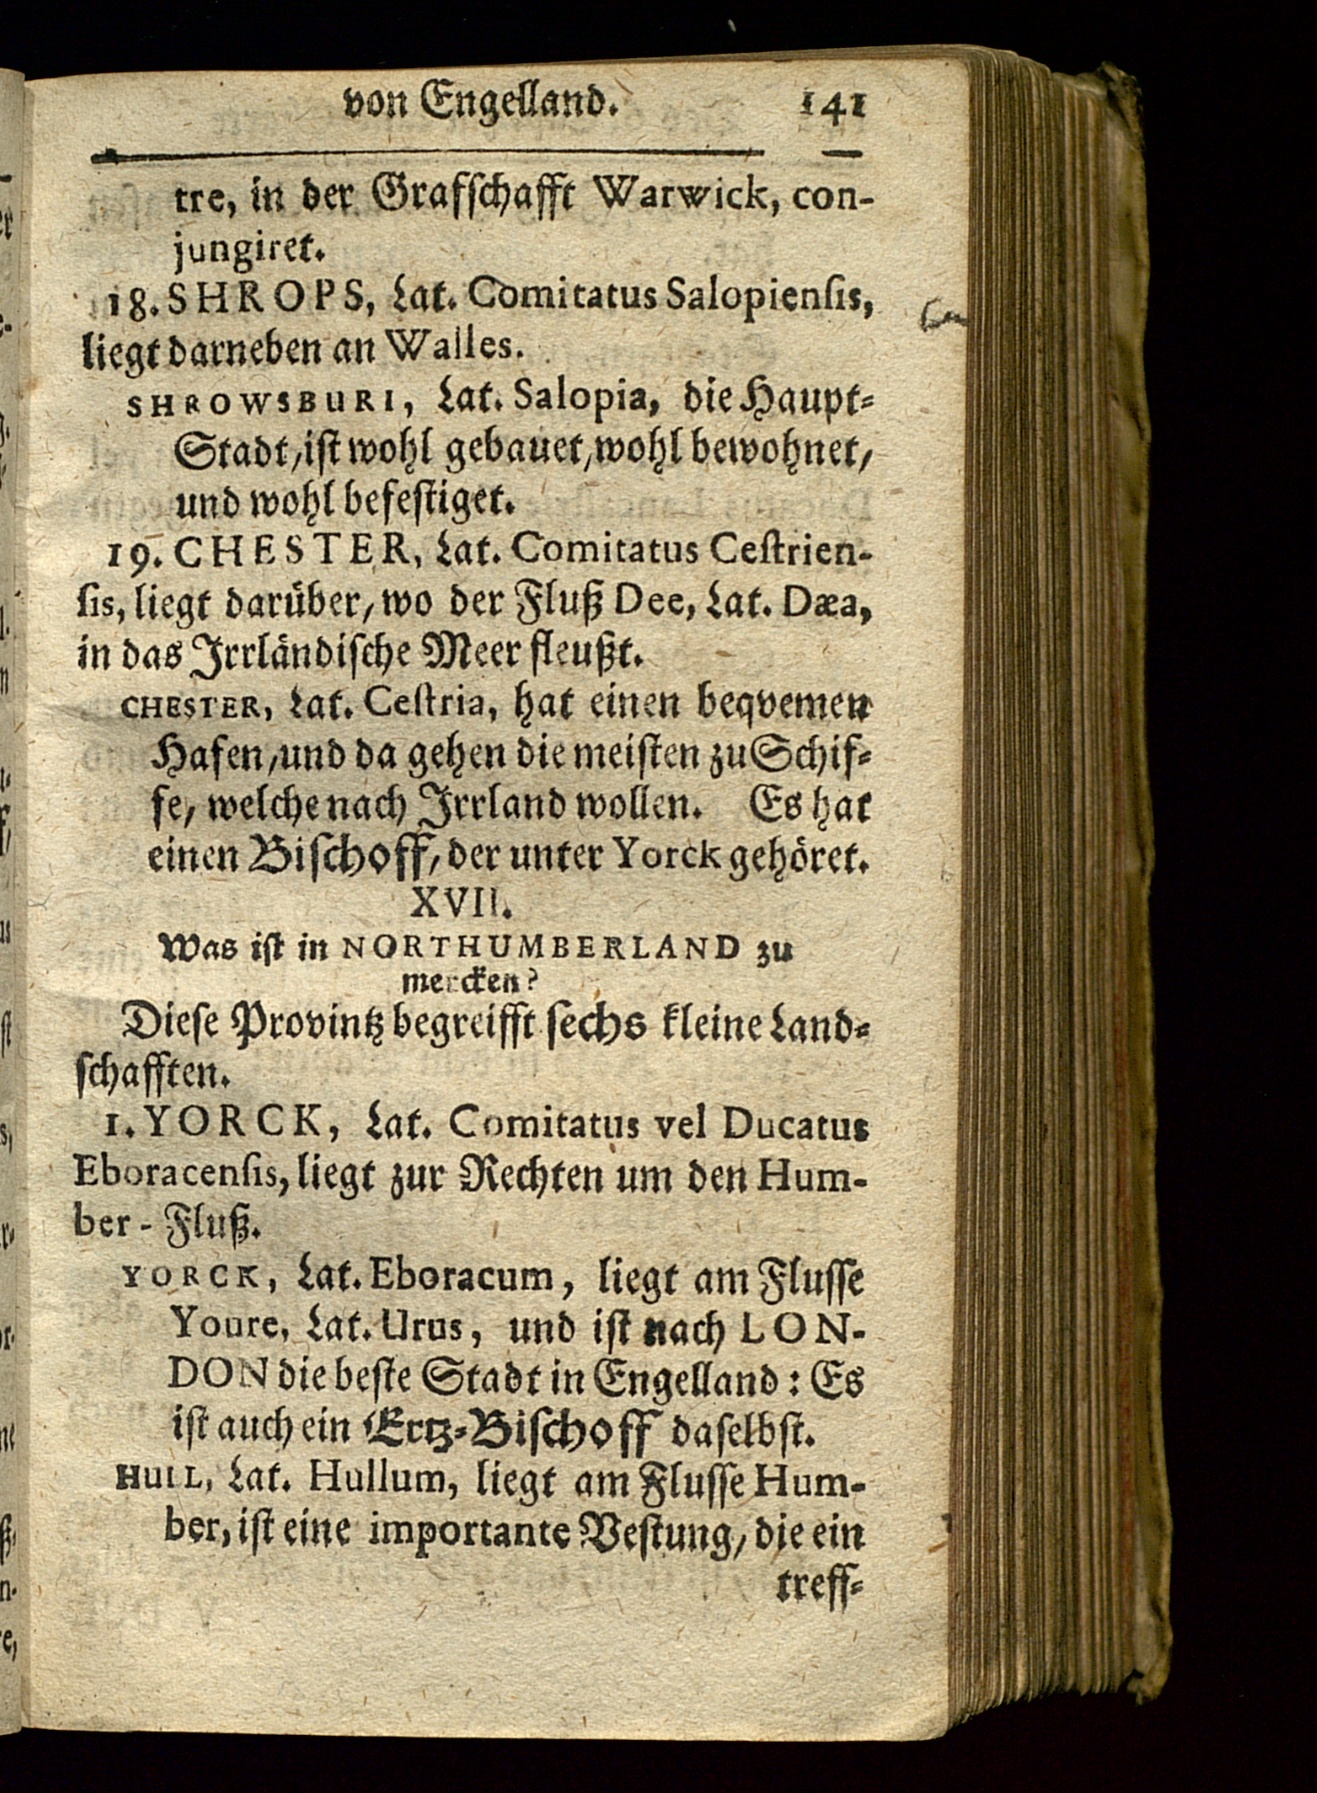 von Engelland. 141
tre, in der Grafſchafft Warwick, con-
jungiret.
18. SHROPS, Lat. Comitatus Salopienſis,
liegt darneben an Walles.
SHROWSBURI, Lat. Salopia, die Haupt-
Stadt, iſt wohl gebauet, wohl bewohnet,
und wohl befeſtiget.
19. CHESTER, Lat. Comitatus Ceſtrien-
ſis, liegt darüber, wo der Fluß Dee, Lat. Dæa,
in das Irrländiſche Meer fleußt.
CHESTER, Lat. Ceſtria, hat einen beqvemen
Hafen, und da gehen die meiſten zu Schif-
fe, welche nach Irrland wollen. Es hat
einen Biſchoff, der unter Yorck gehöret.
XVII.
Was iſt in NORTHUMBERLAND zu
mercken?
Dieſe Provintz begreifft ſechs kleine Land-
ſchafften.
1. YORCK, Lat. Comitatus vel Ducatus
Eboracenſis, liegt zur Rechten um den Hum-
ber-Fluß.
YORCK, Lat. Eboracum, liegt am Fluſſe
Youre, Lat. Urus, und iſt nach LON-
DON die beſte Stadt in Engelland: Es
iſt auch ein Ertz-Biſchoff daſelbſt.
HULL, Lat. Hullum, liegt am Fluſſe Hum-
ber, iſt eine importante Veſtung, die ein
treff-